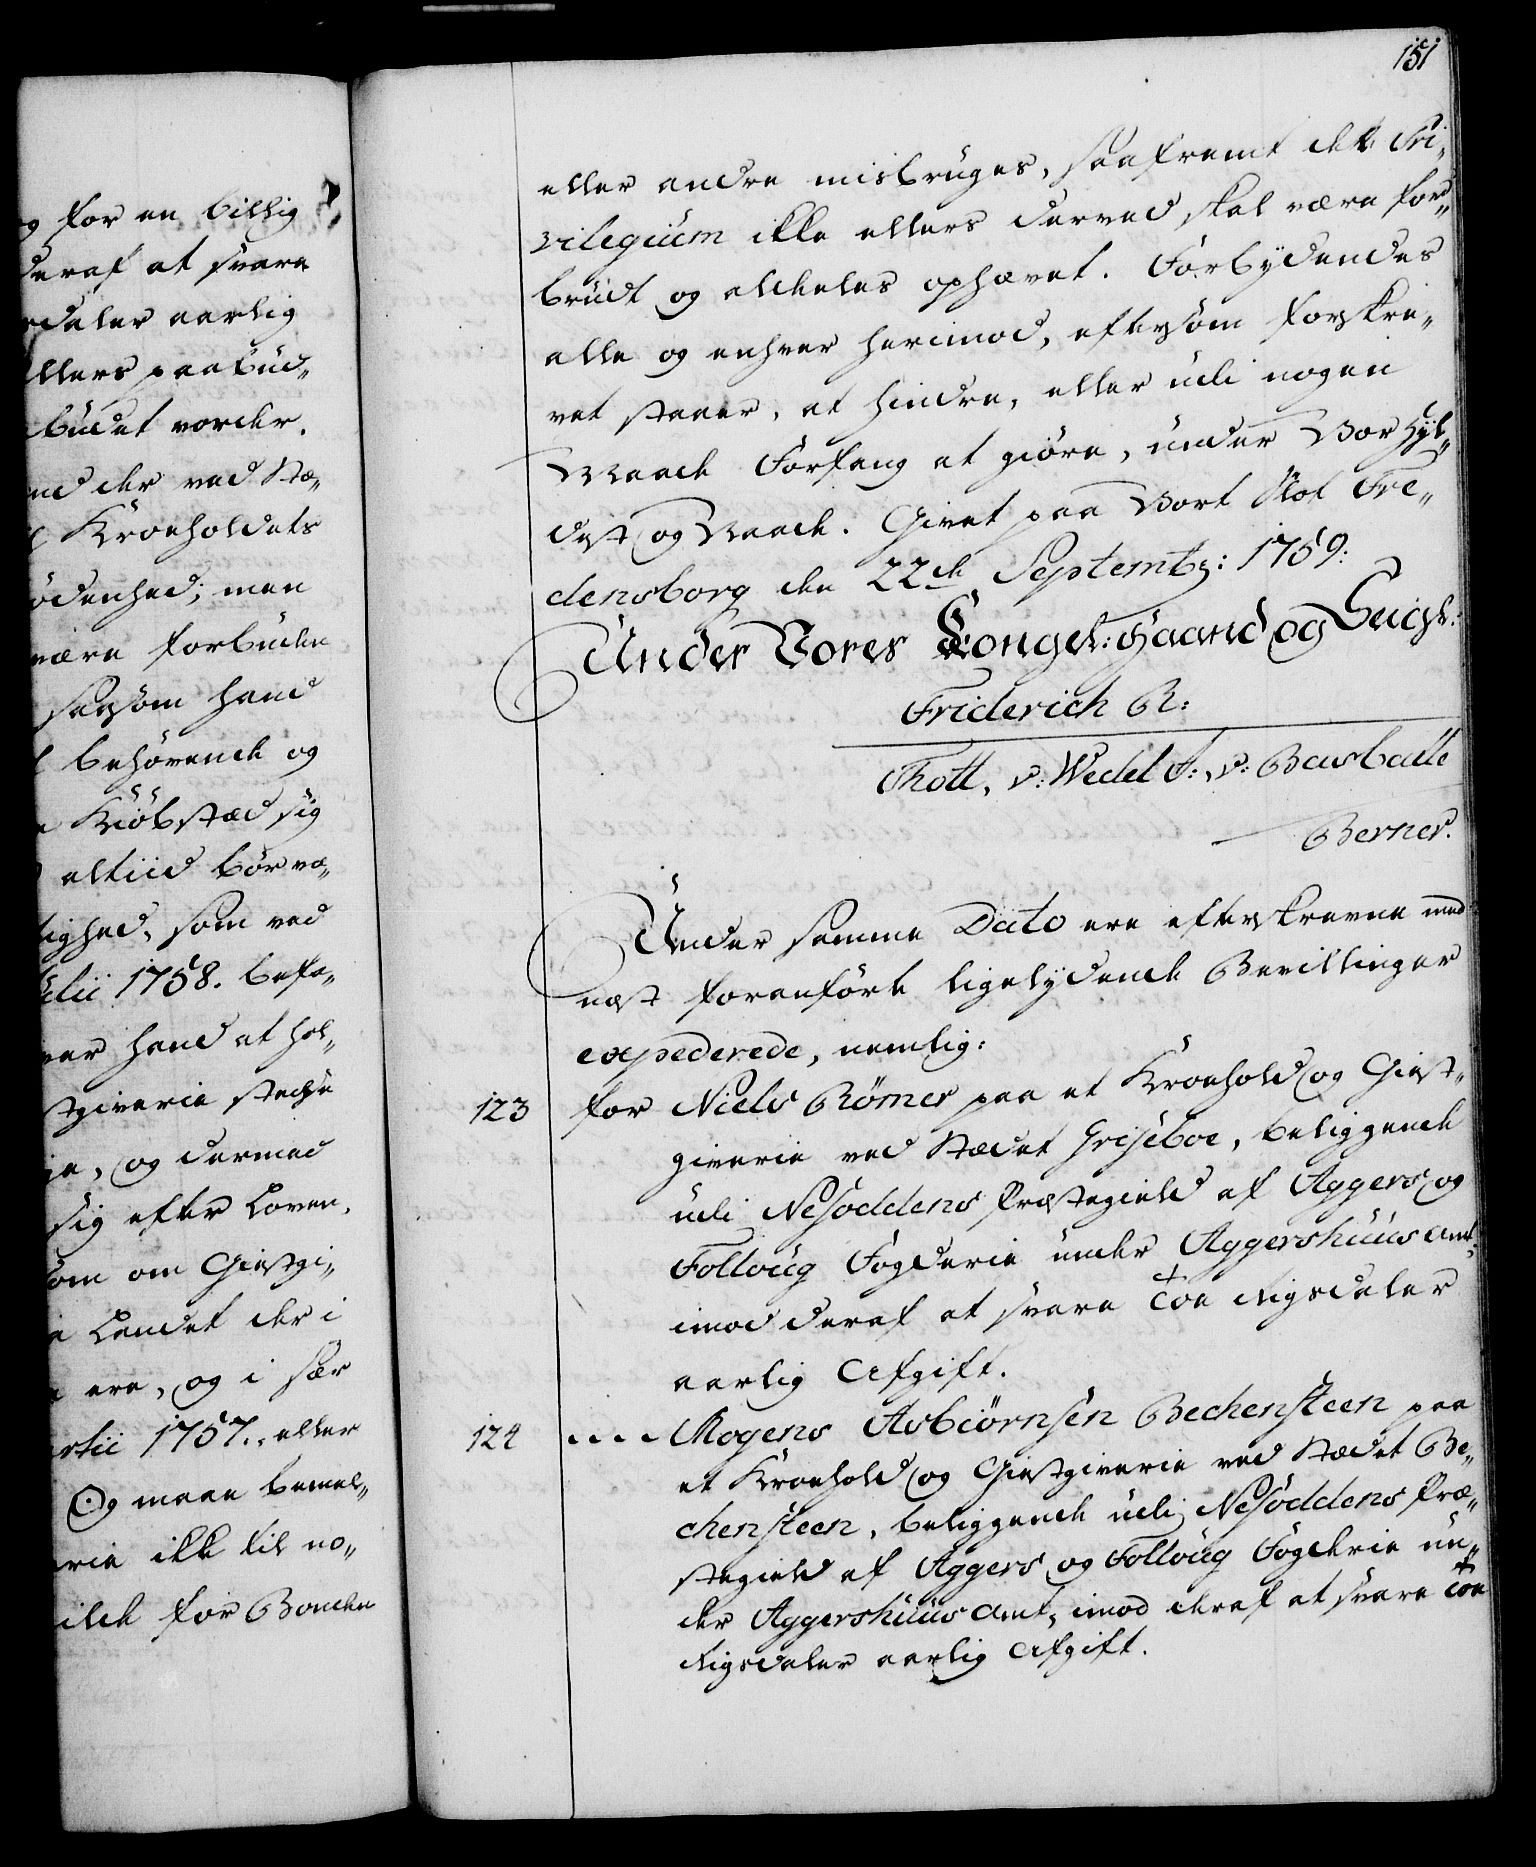 g for en billig
deraf at svare
daler aarlig
ellers paabud„
budet vorder.
ved Stæ„
Kroeholdets
ødenhed; men
være forbuden
saasom hand
behørende og
Kiöbstæd sig
altiid bör væ„
lighed, som ved
Julii 1758. befa„
hand at hol„
stgiverie
og dermed
sig efter Loven,
om Giestgi„
Landet der i
ere, og i sær
Martii 1757., eller
Og maae bemel„
rie ikke til no„
for Bonden
151
eller andre misbruges, saafremt dette Pri„
vilegium ikke ellers derved skal være for„
brudt og aldeles ophævet. Forbydendes
alle og enhver herimod, eftersom forskre„
vet staaer, at hindre, eller udi nogen
Maade Forfang at giöre, under Vor Hyl„
dest og Naade. Givet paa Vort Slot Fre„
densborg den 22de Septembr: 1759:
Under Vores Kongel: Haand og Seigl:
Friderich R:
Thott, v: Wedel F:, v: Beusballe
Berner.
Under samme Dato ere efterskrevne med
næst foranförte ligelydende Bevillinger
expederede, nemlig:
123 for Niels Römer paa et Kroehold og Giest„
giverie ved Stædet Griseboe, beliggende
udi Nesoddens Præstegield af Aggers og
Folloug Fogderie under Aggershuus Amt,
imod deraf at svare Toe Rigsdaler
aarlig Afgift.
124 . . . . Mogens Asbiörnsen Bechensteen paa
et Kroehold og Giestgiverie ved Stædet Be„
chensteen, beliggende udi Nesoddens Præ„
stegield af Aggers og Folloug Fogderie un„
der Aggershuus Amt, imod deraf at svare Toe
Rigsdaler aarlig Afgift.